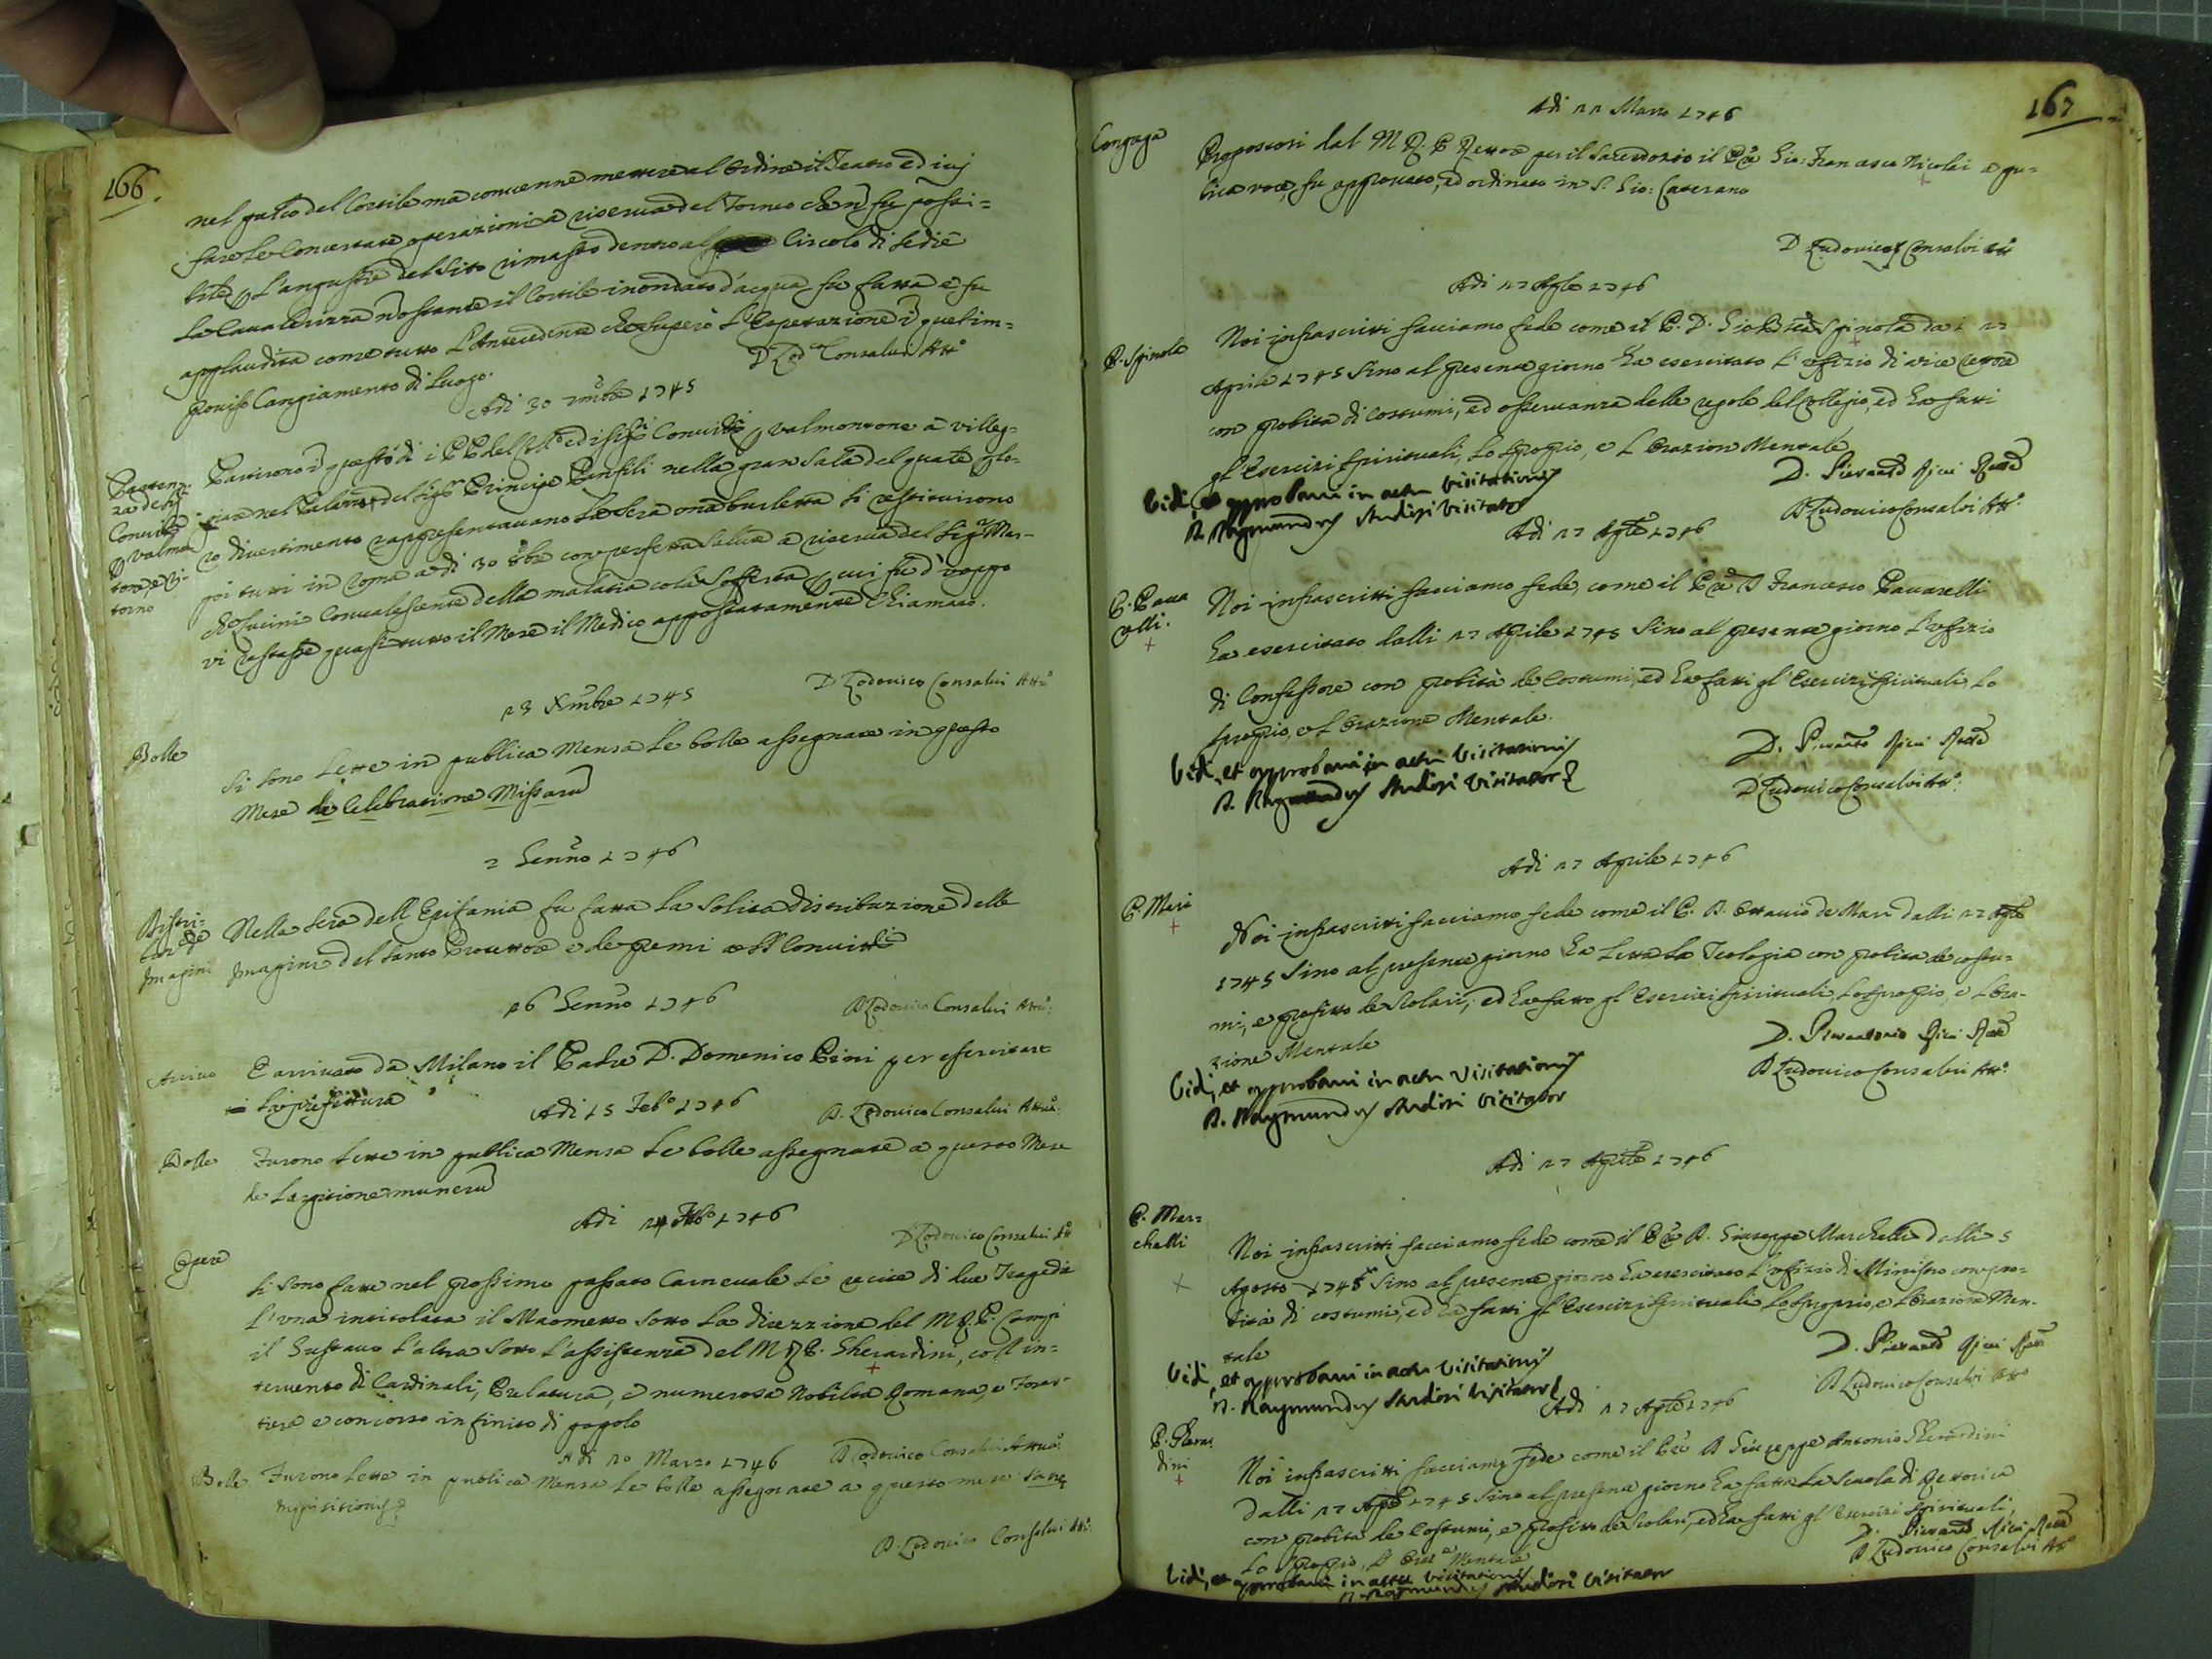 166.
nel palco del Cortile ma convenne mettere al ordine il Teatro ed ivi
fare le Concertate operazioni a riserva del Torneo che ñ fu possi=
bile L'angustie del Sito rimasto dentro al Circolo di sedie
La Cavalerizza ñostante il Cortile inondato d'acqua fu fatta e fu
applaudita come tutto L'Antecedente che superò L'Espetazione quel im=
proviso Cangiamento di Luogo.
D. Lod.co Consalvi Att.o
Adi 30 1745
Parten=
za de SS.
Convitt.i
Valmon
tone, e ri-
torno
Partirono questo di i PP del ed i Convitt.i Valmontone à villeg-
giare nel Palazzo del Sig.r Principe Panfili nella gran Sala del quale loro
divertimento rappresentavano La sera una burletta si restituirono
poi tutti in Roma adi 30 8bre con perfetta Salute a riserva del Sig.r Mar-
Convalescente della malatia colà Sofferta cui fu d'uopo
vi restasse quasi tutto il Mese il Medico appostatamente Chiamato.
D Lodovico Consalvi Att.o
23 Xmbre 1745
Bolle
Si sono Lette in publica Mensa Le bolle assegnate in questo
Mese de Celebratione Missaru
Genn.o 1746
Distri-
buz.e de
Imagini
Nella sera dell'Epifania fu fatta La Solita distribuzione delle
Imagini del Santo Protettore e de premi a SS. Convitt.i
26 Genn.o 1746
D Lodovico Consalvi Att.o
Arrivo
E arrivato da Milano il Padre D. Domenico Pini per essercitare
La prefettura
Adi 15 Feb.o 1746
D. Lodovico Consalvi Att.o
Bolle
Furono Lette in publica Mensa Le bolle assegnate a questo Mese
de Largitione muneru
Adi 24 Feb.o 1746
D Lodovico Consalvi Att.o
Opere
Si sono fatte nel prossimo passato Carnevale Le recite di due Tragedie
L'una intitolata il Maometto sotto La direzzione del M.R.P. Campi
il Gustavo L'altra sotto L'assistenza del M.R.P. Gherardini, coll'in=
tervento di Cardinali, Prelatura, e numerosa Nobiltà Romana, e Fores-
tiera e concorso infinito di popolo
Adi 20 Marzo 1746
D Lodovico Consalvi Att.o
Bolle
Furono Lette in publica Mensa Le bolle assegnate a questo mese
D. Lodovico Consalvi Att.o
167
Adi 22 Marzo 1746
Proposcosi dal M.R.P. Rettore per il Sacerdozio il P.re Gio: Francesco Nicolai a pu-
blica voce, fu approvato, ed ordinato in S. Gio: Laterano
D Ludovico Consalvi Att.o
Adi 27 Aple 1746
P. Spinola
Noi infrascritti facciamo fede come il P. D. Gio Bta Spinola da i 27
Aprile 1745 sino al presente giorno ha esercitato L'offizio di vice rettore
con probità di Costumi, ed osservanza delle regole del Collegio, ed ha fatti
gl'Esercizi spirituali, Lo sproprio, e L'orazion Mentale
D. Pierant.o Ricci Rett.e
Vidi, et approbavi in actu Visitationis
D. Raymundus Studiosi Visitator
D Ludovico Consalvi Att.o
Adi 27 Aple 1746
P. Pava
relli.
Noi infrascritti facciamo fede, come il P.re D Francesco Pavarelli
ha esercitato dalli 27 Aprile 1745 sino al presente giorno L'offizio
di Confessore con probità de Costumi, ed ha fatti gl'Esercizi spirituali, Lo
sproprio, e L'orazione Mentale.
D. Pierant.o Ricci Rett.e
Vidi, et approbavi in actu Visitationis
D. Raymundus Studiosi Visitator
D Ludovico Consalvi Att.o
Adi 27 Aprile 1746
P. Mari
Noi infrascritti facciamo fede come il P. D. Ottavio de Mari dalli 27 Aple
1745 sino al presente giorno ha Letta La Teologia con probità de costu-
mi, e profitto de Scolari, ed ha fatto gl'Esercizi spirituali, Lo sproprio, e L'ora-
zione Mentale
D. Pierantonio Ricci Rett.e
Vidi, et approbavi in actu Visitationis
D. Raymundus Studiosi Visitator
D Ludovico Consalvi Att.o
Adi 27 Aprile 1746
P. Mar=
chelli
Noi infrascritti facciamo fede come il P.re D. Giuseppe Marchelli dalli 5
Agosto 1745 sino al presente giorno ha esercitato L'offizio di Ministro con pro-
bità di costumi, ed ha fatti gl'Esercizi spirituali Lo sproprio, e L'orazione Men-
tale
D. Pierant.o Ricci Rett.e
Vidi, et approbavi in actu Visitationis
D. Raymundus Studiosi Visitator
D Ludovico Consalvi Att.o
Adi 27 Aple 1746
P. Gherar
dini
Noi infrascritti facciamo fede come il P.re D Giuseppe Antonio Gherardini
dalli 27 Aple 1745 sino al presente giorno ha fatta La Scuola di Rettorica
con probità de Costumi, e profitto de Scolari, ed ha fatti gl'Esercizi spirituali
Lo sproprio, L'Oraz.e Mentale
D. Pierant.o Ricci Rett.e
D Ludovico Consalvi Att.o
Vidi, et approbavi in actu Visitationis
D. Raymundus Studiosi Visitator